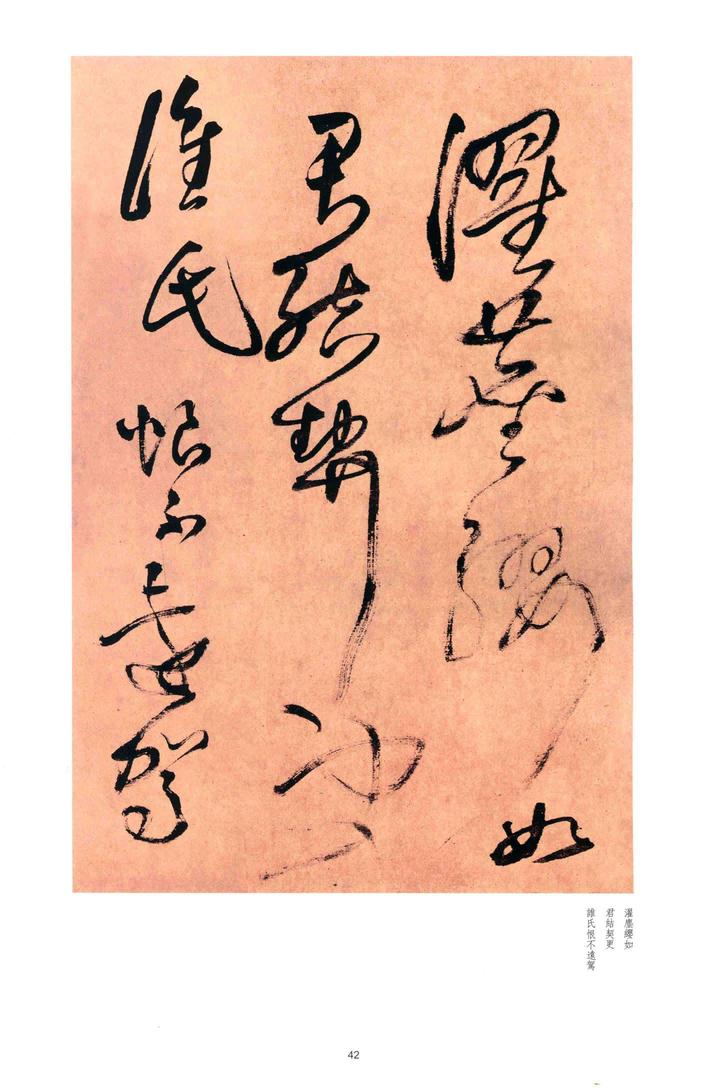 濯塵纓如
君結契更
誰氏恨不遠駕
濯塵纓如
君結契更
誰氏恨不遠駕
42